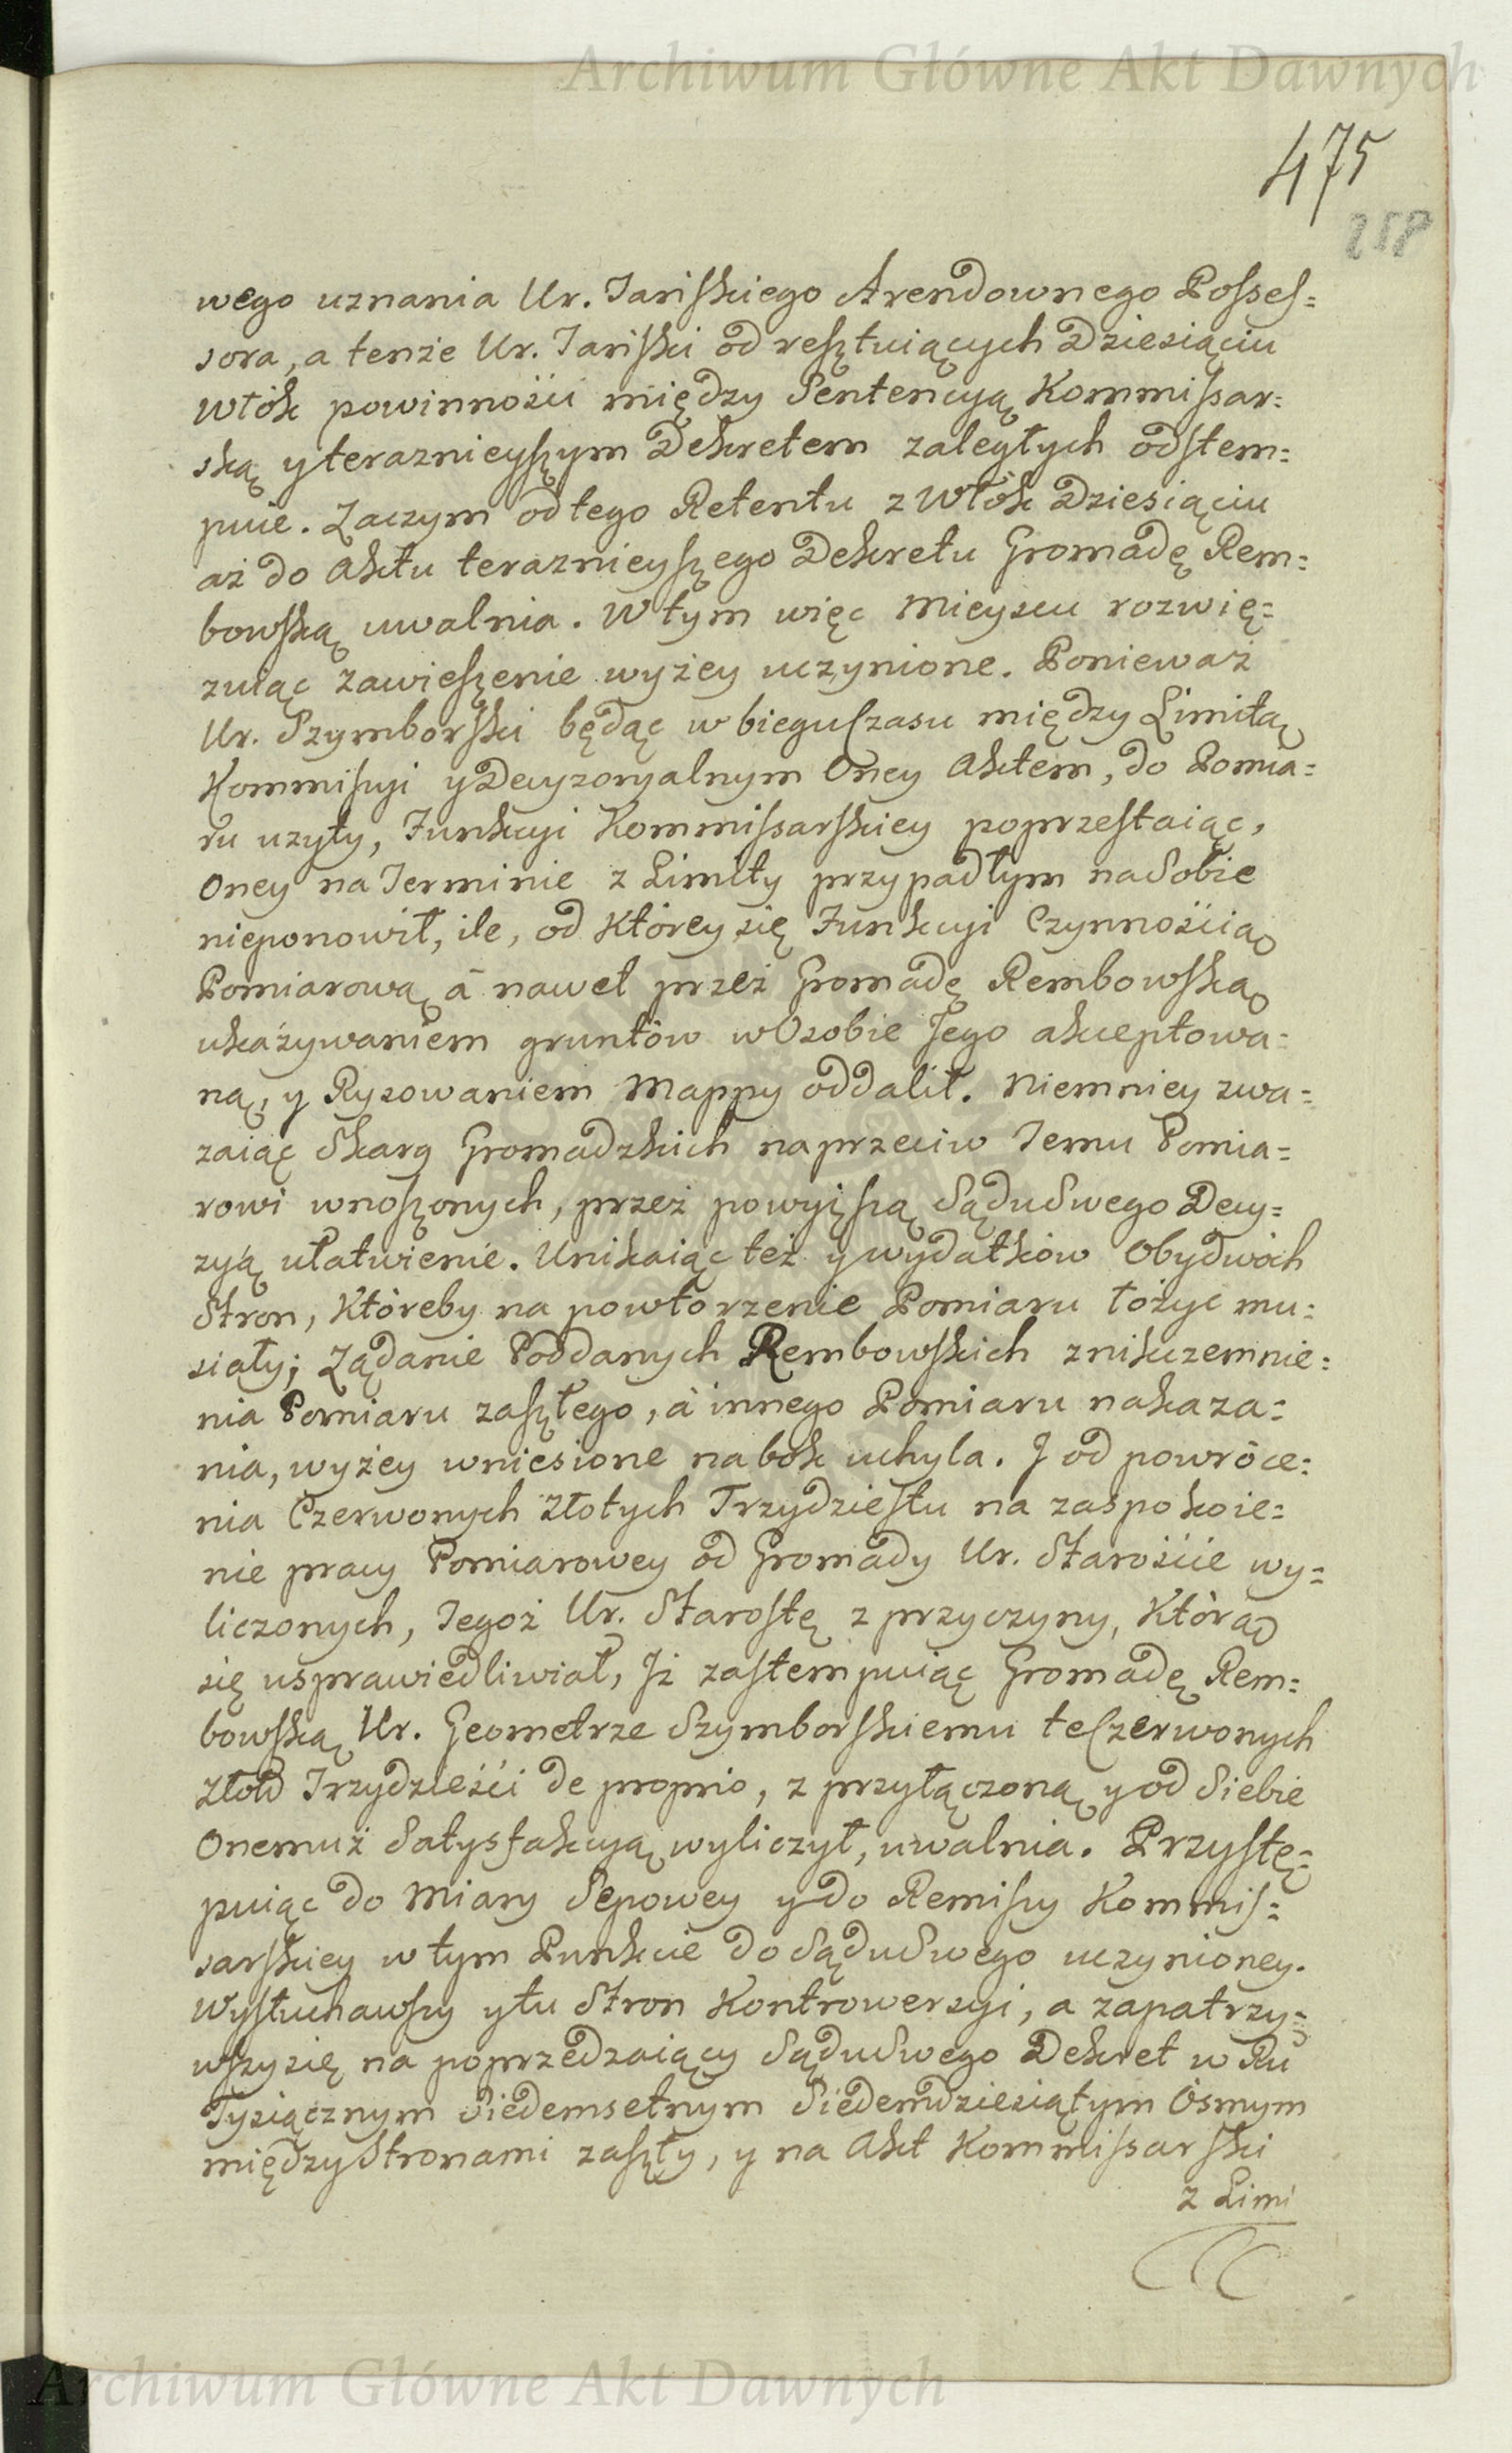 Archiwum Główne Akt Dawnych
475
258
wego uznania Ur. Jariskiego Arendownego Posses=
sora, a tenże Ur. Jariski od resztuiących Dziesiąciu
Włók powinności między Sentencyą Kommissar=
ską y teraznieyszym Dekretem zaległych odstem=
puie. Zaczym od tego Retentu z Włók Dziesiąciu
aż do Aktu teraznieyszego Dekretu Gromadę Rem=
bowską uwalnia. W tym więc Mieyscu rozwię=
zuiąc zawieszenie wyżey uczynione. Ponieważ
Ur. Szymborski będąc w biegu Czasu między Limitą
Kommissyi y Decyzoryalnym Oney Aktem, do Pomia=
ru użyty, Funkcyi Kommissarskiey poprzestaiąc,
Oney na Terminie z Limity przypadłym na Sobie
nieponowił, ile, od Którey się Funkcyi Czynnością
Pomiarową á nawet przez Gromadę Rembowską
ukazywaniem gruntów w Osobie Jego akceptowa=
ną, y Rysowaniem Mappy oddalił. Niemniey zwa=
zaiąc Skarg Gromadzkich naprzeciw Temu Pomia=
rowi wnoszonych, przez powyższą Sądu Swego Decy=
zyą ułatwienie. Unikaiąc też y wydatków Obydwóch
Stron, Któreby na powtorzenie Pomiaru łożyc mu=
siały; Ządanie Poddanych Rembowskich znikczemnie=
nia Pomiaru zaszłego, á innego Pomiaru nakaza=
nia, wyżey wniesione na bok uchyla. J od powróce=
nia Czerwonych Złotych Trzydziestu na zaspokoie=
nie pracy Pomiarowey od Gromady Ur. Starościе wy=
liczonych, Tegoż Ur. Starostę z przyczyny, Którą
się usprawiedliwiał, Jż zastempuiąc Gromadę Rem=
bowską Ur. Geometrze Szymborskiemu te Czerwonych
Złotd Trzydzieści de proprio, z przyłączoną y od Siebie
Onemuż Satysfakcyą wyliczył, uwalnia. Przystę=
puiąc do Miary Sepowey y do Remissy Kommis=
sarskiey w tym Punkcie do Sądu Swego uczynioney.
Wysłuchawszy y tu Stron Kontrowersyi, a zapatrzy=
wszy się na poprzedzaiący Sądu Swego Dekret w Ru
Tysiącznym Siedemsetnym Siedemdziesiątym Osmym
między Stronami zaszły, y na Akt Kommissarski
z Limi
Archiwum Główne Akt Dawnych